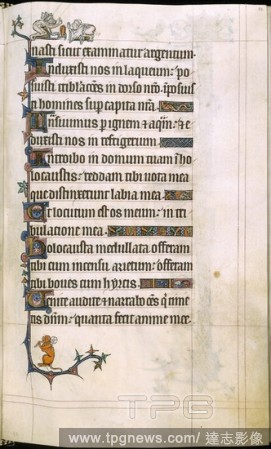 nasti sicut examinatur argentum.
Induxisti nos in laqueum: po
suisti tribulacōes in dorso nr̄o. īposuis
ti homines sup capita nr̄a.
Transiuimus p ignem et aquā: et e
duxisti nos in refrigerium.
Introibo in domum tuam ī ho
locaustis: reddam tibi uota mea
que distinxerunt labia mea.
Et locutum est os meum: in tri
bulacione mea.
Holocausta medullata offeram
tibi cum incensu arietum: offeram
tibi boues cum hyrcis.
Uenite audite et narrabo om̄s q̄ time
tis dn̄m: quanta fecit anime mee.
TPG
www.tpgnews.com / 達志影像